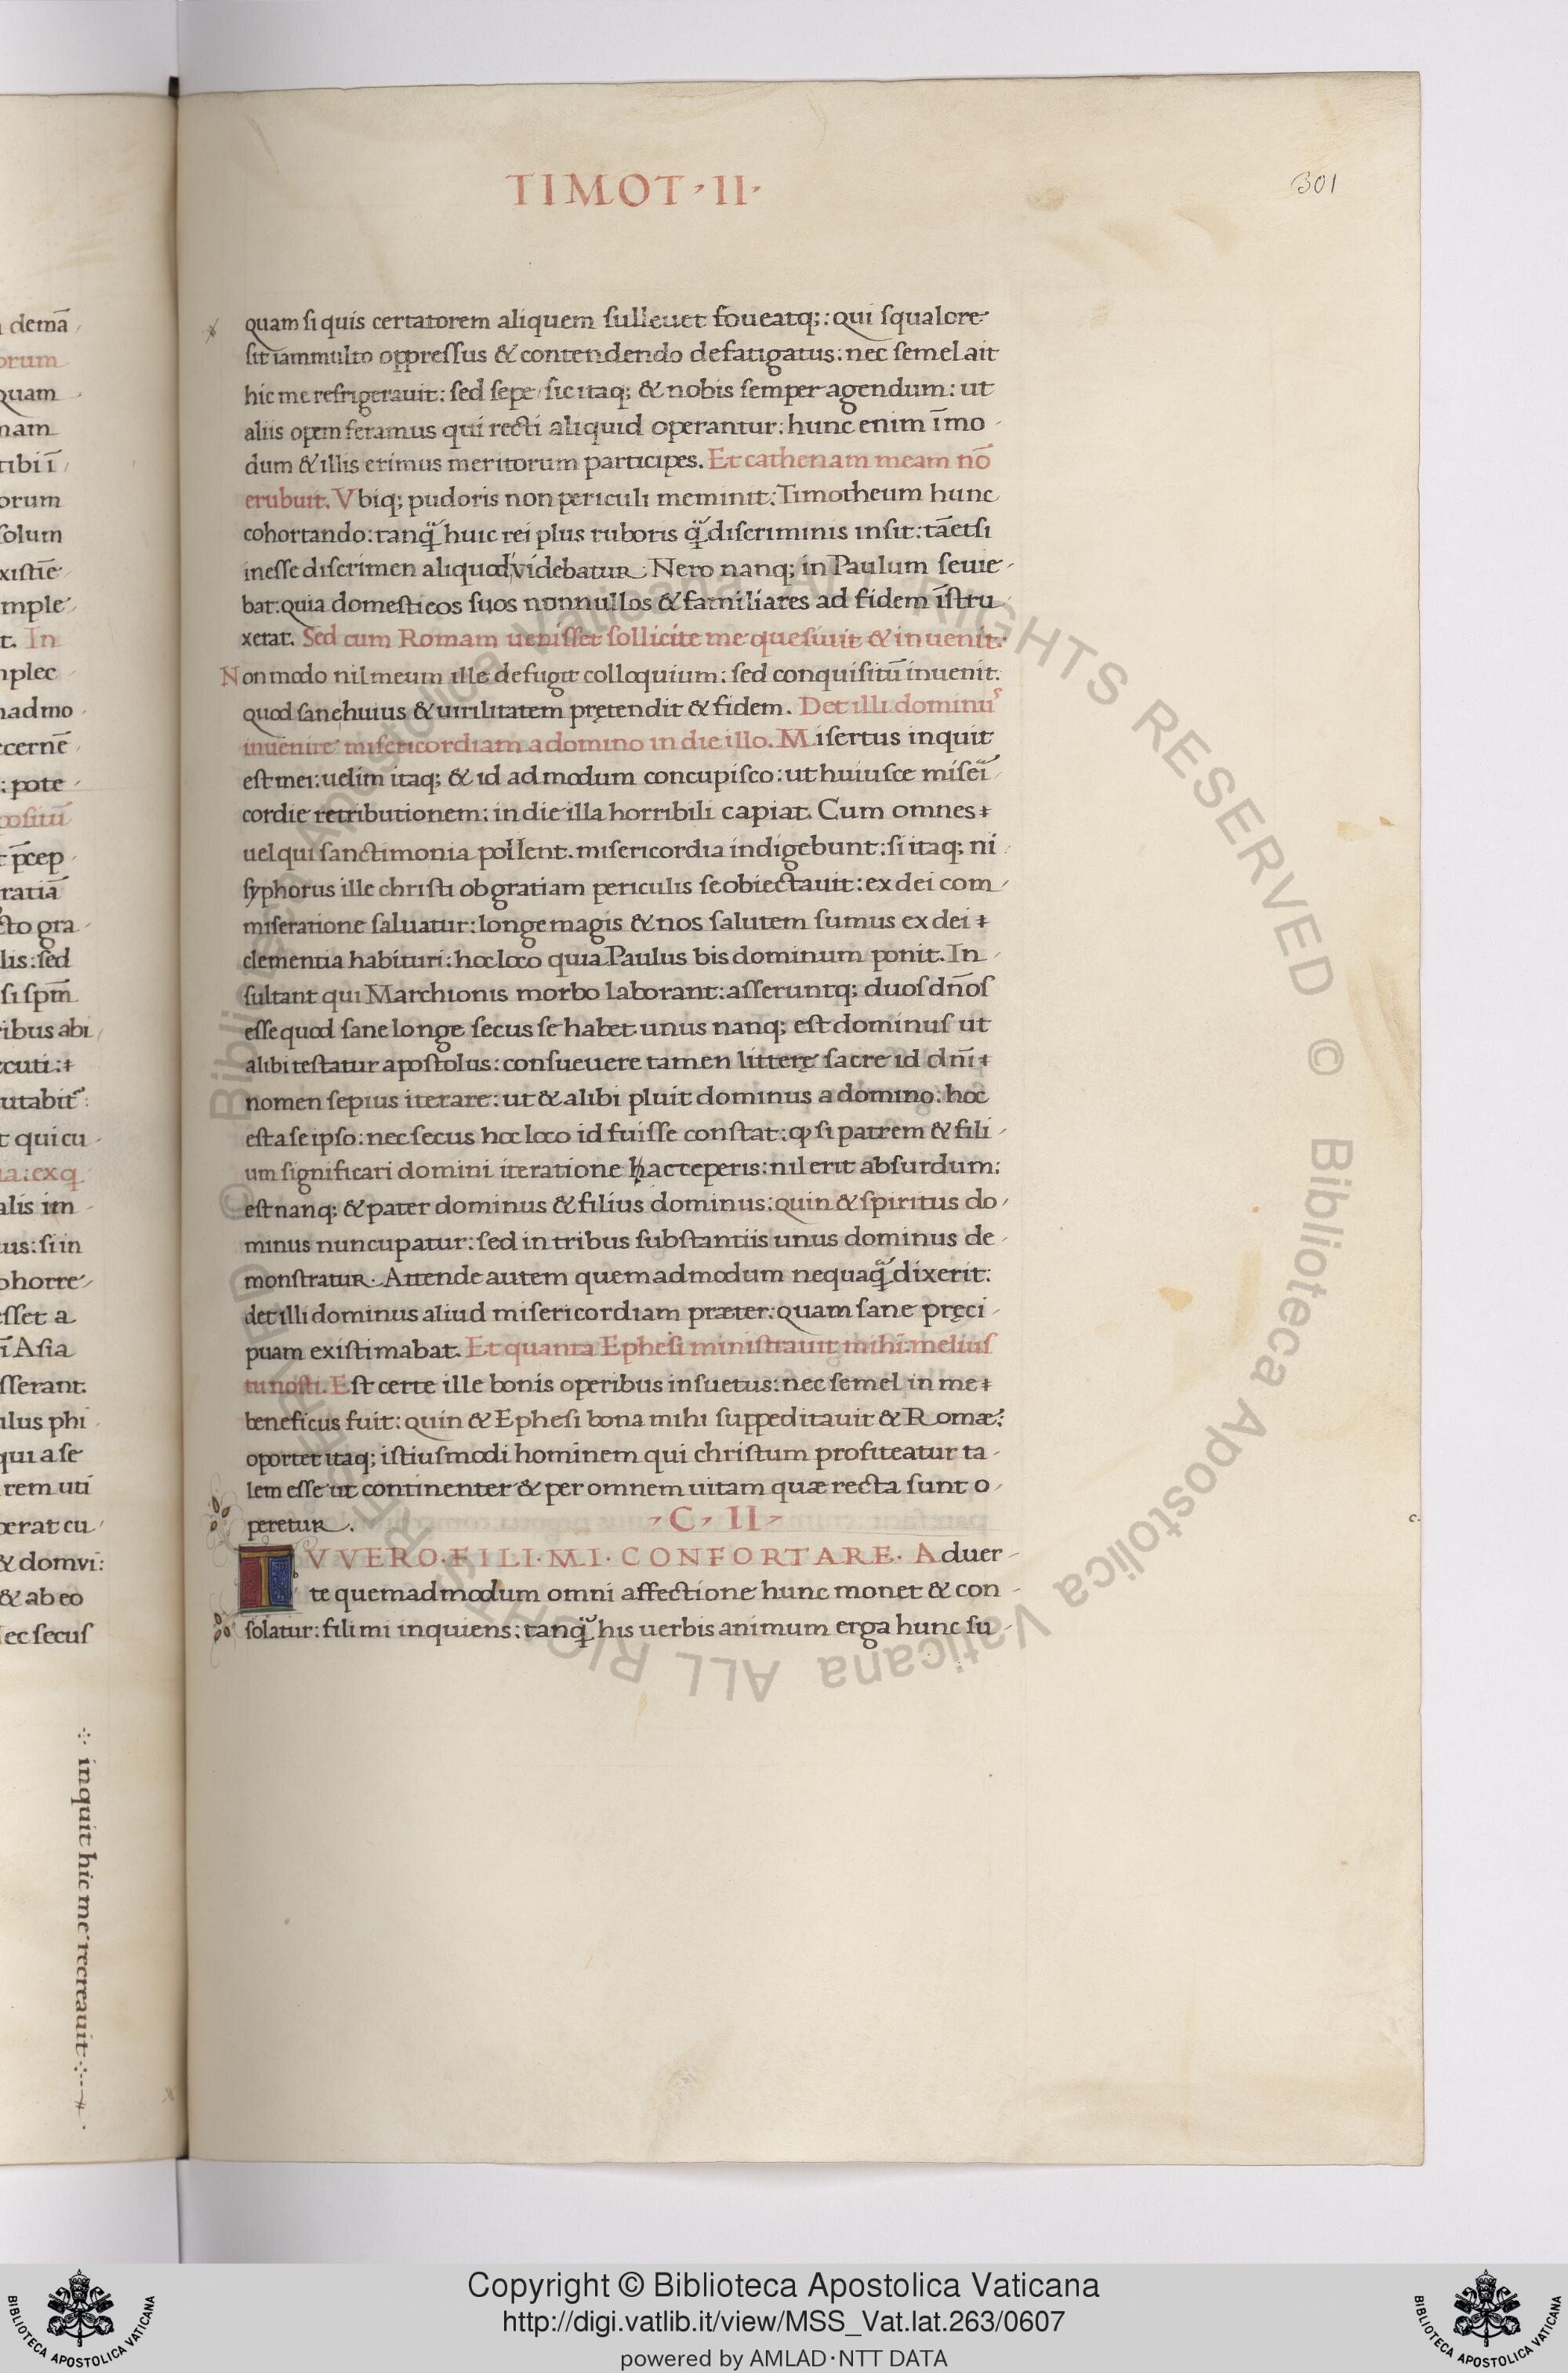 TIMOT · II ·
301
quam si quis certatorem aliquem sulleuet foueatq;: qui squalore
sit iam multo oppressus & contendendo defatigatus: nec semel ait
hic me refrigerauit: sed sepe / sic itaq; & nobis semper agendum: ut
aliis opem feramus qui recti aliquid operantur: hunc enim ī mo
dum & illis erimus meritorum participes. Et cathenam meam nō
erubuit. Vbiq; pudoris non periculi meminit: Timotheum hunc
cohortando: tanq̄ huic rei plus ruboris q̄ discriminis insit: tāetsi
inesse discrimen aliquod videbatur. Nero nanq; in Paulum seuie
bat: quia domesticos suos nonnullos & familiares ad fidem īstru
xerat. Sed cum Romam uenisset sollicite me quesiuit & inuenit.
Non modo nil meum ille defugit colloquium: sed conquisitū inuenit.
quod sane huius & uirilitatem prętendit & fidem. Det illi dominus
inuenire misericordiam a domino in die illo. Misertus inquit
est mei: uelim itaq; & id admodum concupisco: ut huiusce miseri
cordie retributionem: in die illa horribili capiat. Cum omnes
uel qui sanctimonia pollent. misericordia indigebunt: si itaq; ni
syphorus ille christi ob gratiam periculis se obiectauit: ex dei com
miseratione saluatur: longe magis & nos salutem sumus ex dei
clementia habituri: hoc loco quia Paulus bis dominum ponit. In
sultant qui Marchionis morbo laborant: asseruntq; duos dn̄os
esse quod sane longe secus se habet. unus nanq; est dominus ut
alibi testatur apostolus: consueuere tamen litterę sacre id dn̄i
nomen sepius iterare: ut & alibi pluit dominus a domino: hoc
est a se ipso: nec secus hoc loco id fuisse constat: ꝙ si patrem & fili
um significari domini iteratione hac acceperis: nil erit absurdum:
est nanq; & pater dominus & filius dominus: quin & spiritus do
minus nuncupatur: sed in tribus substantiis unus dominus de
monstratur. Attende autem quemadmodum nequaq̄ dixerit:
det illi dominus aliud misericordiam præter: quam sane pręci
puam existimabat. Et quanta Ephesi ministrauit mihi: melius
tu nosti. Est certe ille bonis operibus insuetus: nec semel in me
beneficus fuit: quin & Ephesi bona mihi suppeditauit & Romæ:
oportet itaq; istiusmodi hominem qui christum profiteatur ta
lem esse ut continenter & per omnem uitam quæ recta sunt o
peretur.
C · II
TV VERO · FILI · MI · CONFORTARE. Aduer
te quemadmodum omni affectione hunc monet & con
solatur: fili mi inquiens: tanq̄ his uerbis animum erga hunc su
inquit hic me recreauit
Copyright © Biblioteca Apostolica Vaticana
http://digi.vatlib.it/view/MSS_Vat.lat.263/0607
powered by AMLAD·NTT DATA
BIBLIOTECA APOSTOLICA VATICANA
BIBLIOTECA APOSTOLICA VATICANA
© Biblioteca Apostolica Vaticana ALL RIGHTS RESERVED © Biblioteca Apostolica Vaticana ALL RIGHTS RESERVED